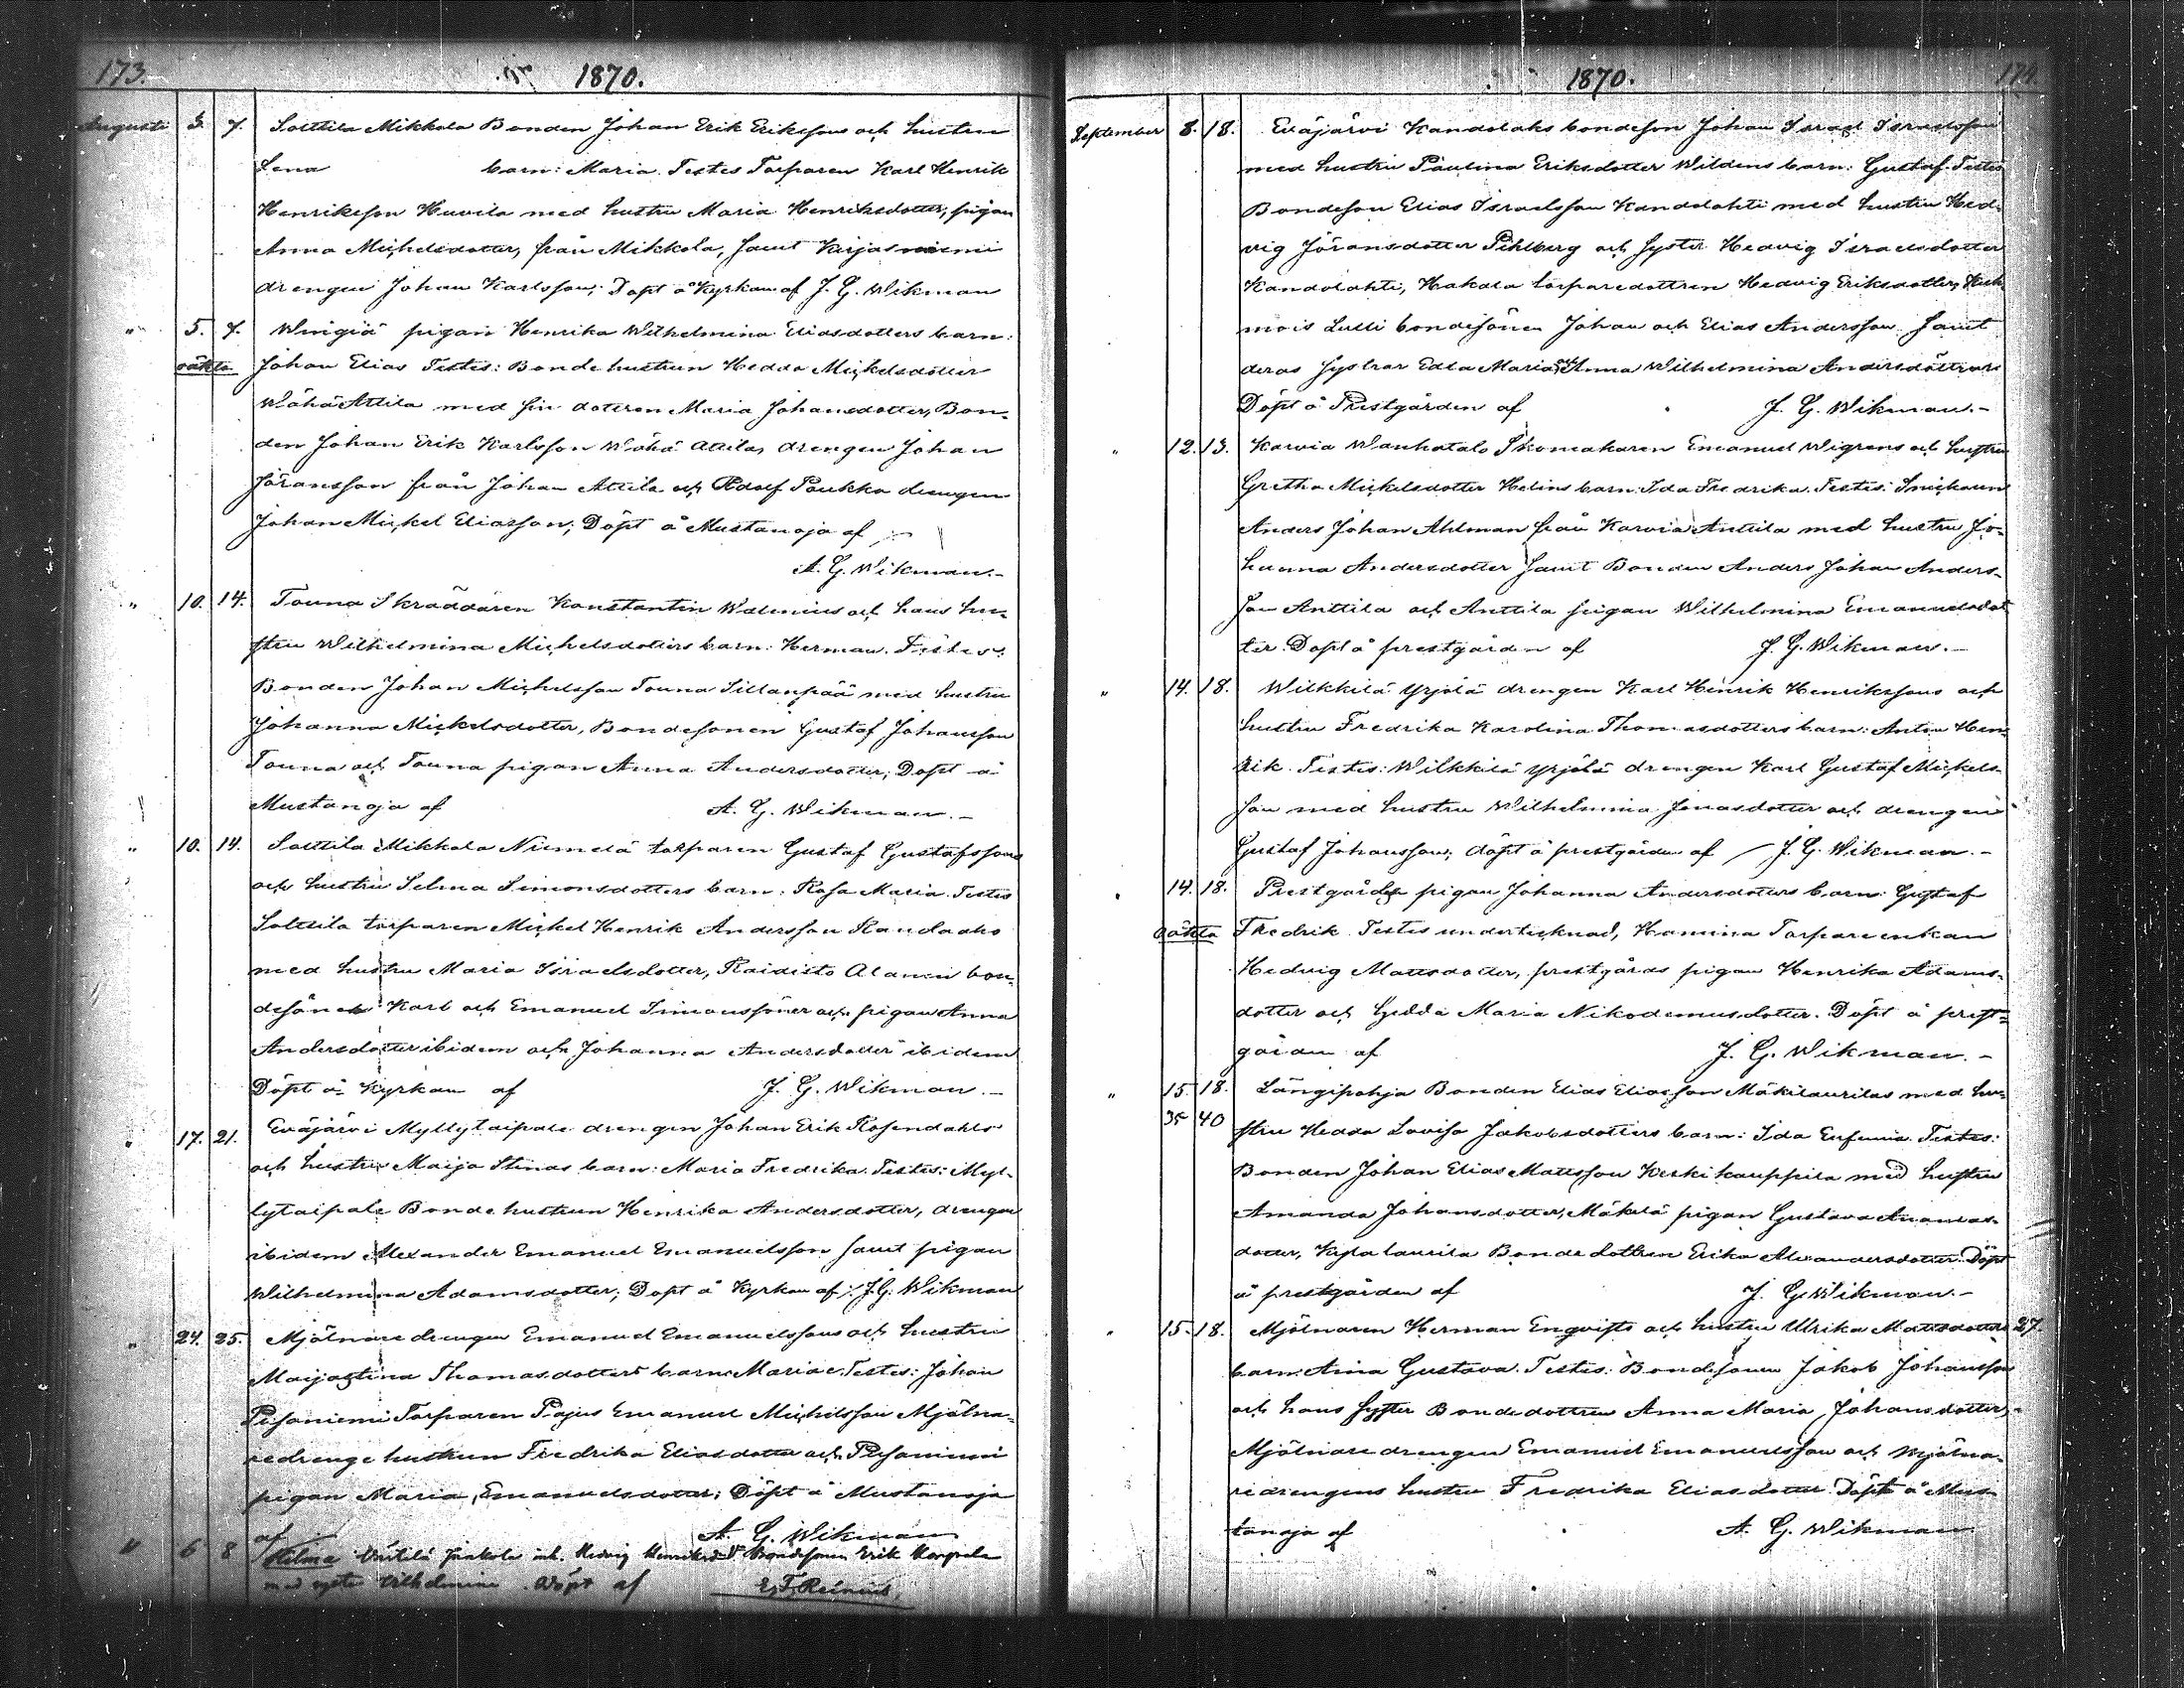 173. 1870.
Augusti 3. 7. Solttila Mikkola Bonden Johan Erik Eriksons och hustru
Lena barn: Maria. Testes Torparen Karl Henrik
Henrikson Huvila med hustru Maria Henriksdotter, pigan
Anna Michelsdotter, från Mikkola, samt Kirjasniemi
drengen Johan Karlsson; Döpt å Kyrkan af J. G. Wikman
" 5. 7. Wingiä pigan Henrika Wilhelmina Eliasdotters barn:
oäkta Johan Elias Testes: Bondehustrun Hedda Mickelsdotter
Wähä Attila med sin dottren Maria Johansdotter, Bon-
den Johan Erik Karlsson Wähä Attila, drengen Johan
Jöransson från Johan Attila och Adolf Paukka drengen
Johan Mickel Eliasson; Döpt å Mustanoja af
A. G. Wikman.-
" 10. 14. Touna Skräddaren Konstantin Walenius och hans hu-
stru Wilhelmina Michelsdotters barn: Herman. Testes:
Bonden Johan Michelsson Touna Sillanpää med hustru
Johanna Mickelsdotter, Bondesonen Gustaf Johansson
Touna och Touna pigan Anna Andersdotter; Döpt å
Mustanoja af A. G. Wikman.-
" 10. 14. Solttila Mikkola Niemelä torparen Gustaf Gustafssons
och hustru Selma Simonsdotters barn: Rosa Maria. Testes
Solttila torparen Mickel Henrik Andersson Raudaaho
med hustru Maria Israelsdotter, Raidisto Alanen bon-
desöner Karl och Emanuel Simonssöner och pigan Anna
Andersdotter ibidem och Johanna Andersdotter ibidem
Döpt å Kyrkan af J. G. Wikman.-
" 17. 21. Eväjärvi Myllytaipale drengen Johan Erik Rosendahls
och hustru Maija Stinas barn: Maria Fredrika. Testes: Myl-
lytaipale Bondehustrun Henrika Andersdotter, drengen
ibidem Alexander Emanuel Emanuelsson samt pigan
Wilhelmina Adamsdotter; Döpt å Kyrkan af J. G. Wikman
" 24. 25. Mjölnare drengen Emanuel Emanuelssons och hustru
Maijastina Thomasdotters barn: Maria. Testes: Johan
Pisoniemi Torparen Pajus Emanuel Michelsson Mjölna-
redrenge hustrun Fredrika Eliasdotter och Pisoniemi
pigan Maria Emanuelsdotter; Döpt å Mustanoja
af A. G. Wikman
" 6 8 Hilma Jaakola inh. Hedvig Bondesonen Erik
med syster Vilhelmina. Döpt af E. F. Reinius.
1870. 174.
September 8. 18. Eväjärvi Kandolaks bondeson Johan Israel Israelsson
med hustru Paulina Eriksdotter Wildens barn: Gustaf. Testes
Bondeson Elias Israelsson Kandolahti med hustru Hed-
vig Jöransdotter Pihlberg och syster Hedvig Israelsdotter
Kandolahti, Hakala torparedottren Hedvig Eriksdotter, Kuh-
mois Lulli bondesönen Johan och Elias Andersson samt
deras systrar Edla Maria och Anna Wilhelmina Andersdöttrar
Döpt å Prestgården af J. G. Wikman.-
" 12. 13. Karvia Wanhatalo Skomakaren Emanuel Wigrens och hustru
Gretha Mickelsdotter Helins barn: Ida Fredrika. Testes: Snickaren
Anders Johan Ahlman från Karvia Anttila med hustru Jo-
hanna Andersdotter samt Bonden Anders Johan Anders-
son Anttila och Anttila pigan Wilhelmina Emanuelsdot
ter. Döpt å prestgården af J. G. Wikman.-
" 14. 18. Wilkkilä Yrjölä drengen Karl Henrik Henrikssons och
hustru Fredrika Karolina Thomasdotters barn: Anton Hen-
rik. Testes: Wilkkilä Yrjölä drengen Karl Gustaf Mickels-
son med hustru Wilhelmina Jonasdotter och drengen
Gustaf Johansson; döpt å prestgården af J. G. Wikman.-
14. 18. Prestgårds pigan Johanna Andersdotters barn: Gustaf
oäkta Fredrik. Testes undertecknad, Hamina Torpareenkan
Hedvig Mattsdotter, prestgårds pigan Henrika Adams-
dotter och Hedda Maria Nikodemusdotter. Döpt å prest-
gården af J. G. Wikman.-
" 15. 18. Längipohja Bonden Elias Eliasson Mäkilaurilas med hu-
35 40 stru Hedda Lovisa Jakobsdotters barn: Ida Eufemia. Testes:
Bonden Johan Elias Mattsson Keskikauppila med hustru
Amanda Johansdotter, Mäkelä pigan Gustava Amandas-
dotter, Kylalaurila Bondedottren Erika Alexandersdotter. Döpt
å prestgården af J. G. Wikman.-
" 15. 18. Mjölnaren Herman Engvists och hustru Ulrika Mattsdotters 27.
barn: Aina Gustava. Testes: Bondesonen Jakob Johansson
och hans syster Bondedottren Anna Maria Johansdotter,
Mjölnare drengen Emanuel Emanuelsson och mjölna-
redrengens hustru Fredrika Eliasdotter. Döpt å Mus-
tanoja af A. G. Wikman